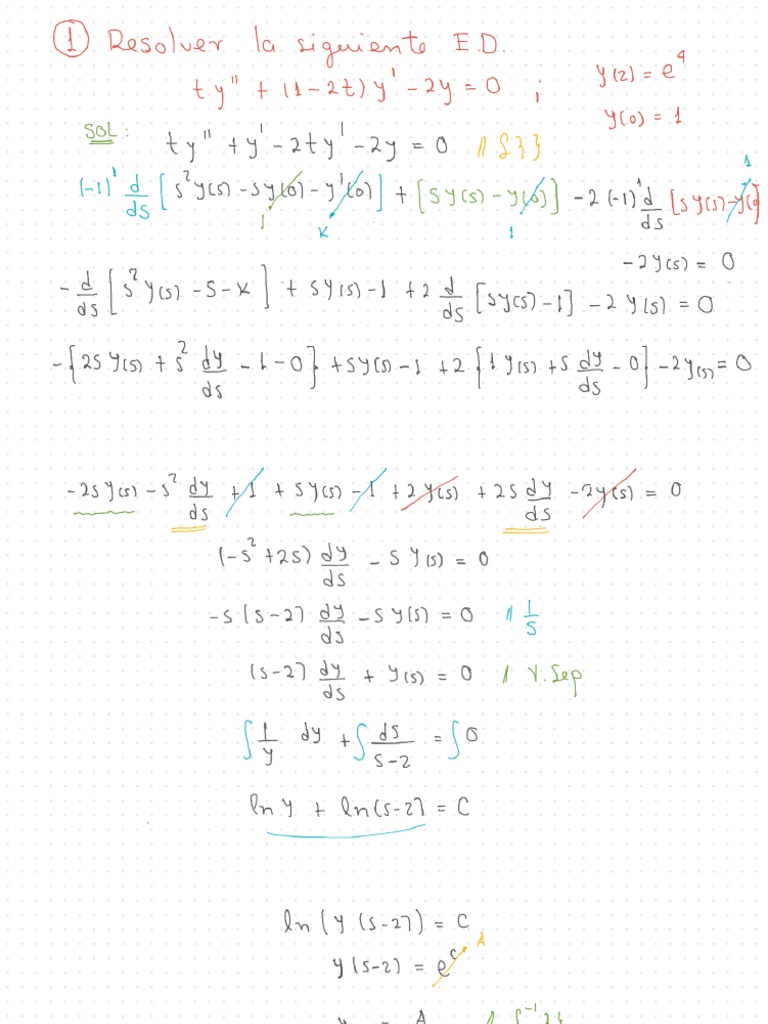 ① Resolver la siguiente E.D.
ty'' + (1-2t)y' - 2y = 0 ; y(2) = e^4
y(0) = 1
SOL: ty'' + y' - 2ty' - 2y = 0 // ℒ{ }
(-1)^1 d/ds [s^2 y(s) - sy(0) - y'(0)] + [sy(s) - y(0)] - 2(-1)^1 d/ds [sy(s) - y(0)]
1 k 1 1
- 2y(s) = 0
- d/ds [s^2 y(s) - s - k] + sy(s) - 1 + 2 d/ds [sy(s) - 1] - 2y(s) = 0
-{2s y(s) + s^2 dy/ds - 1 - 0} + sy(s) - 1 + 2{1y(s) + s dy/ds - 0} - 2y(s) = 0
-2sy(s) - s^2 dy/ds + 1 + sy(s) - 1 + 2y(s) + 2s dy/ds - 2y(s) = 0
(-s^2 + 2s) dy/ds - s y(s) = 0
-s(s-2) dy/ds - sy(s) = 0 // 1/s
(s-2) dy/ds + y(s) = 0 // V. Sep
∫ 1/y dy + ∫ ds/(s-2) = ∫ 0
ln y + ln(s-2) = C
ln(y(s-2)) = C
y(s-2) = e^c A